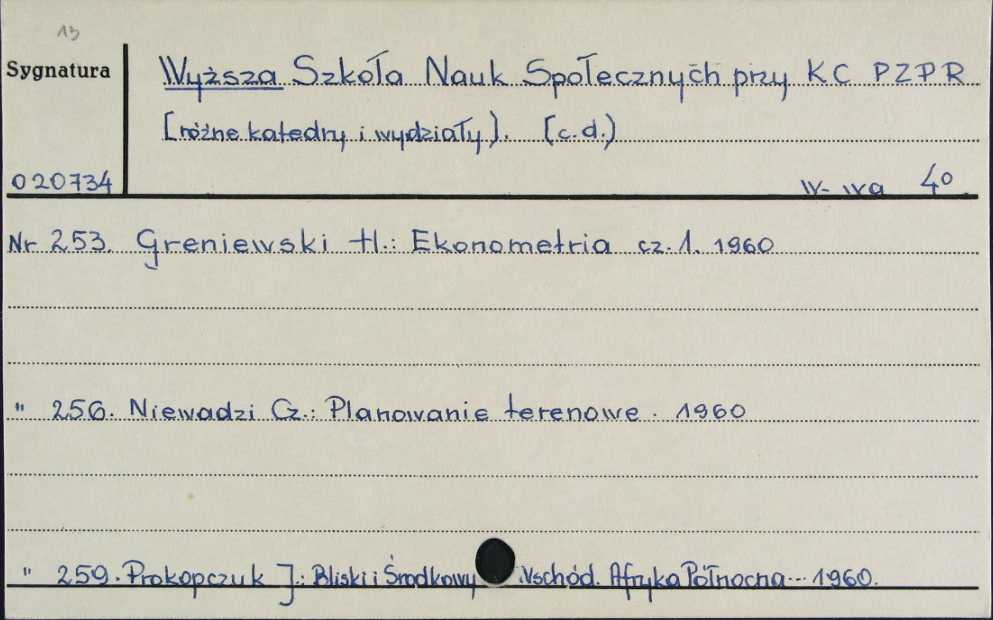 13
Sygnatura
Wyższa Szkoła Nauk Społecznych przy KC PZPR
[różne katedry i wydziały]. [c.d.)
020734
W-wa 4°
Nr 253. Greniewski H.: Ekonometria cz. 1. 1960
" 256. Niewadzi Cz.: Planowanie terenowe. 1960
" 259. Prokopczuk J.: Bliski i Środkowy Wschód. Afryka Północna... 1960.